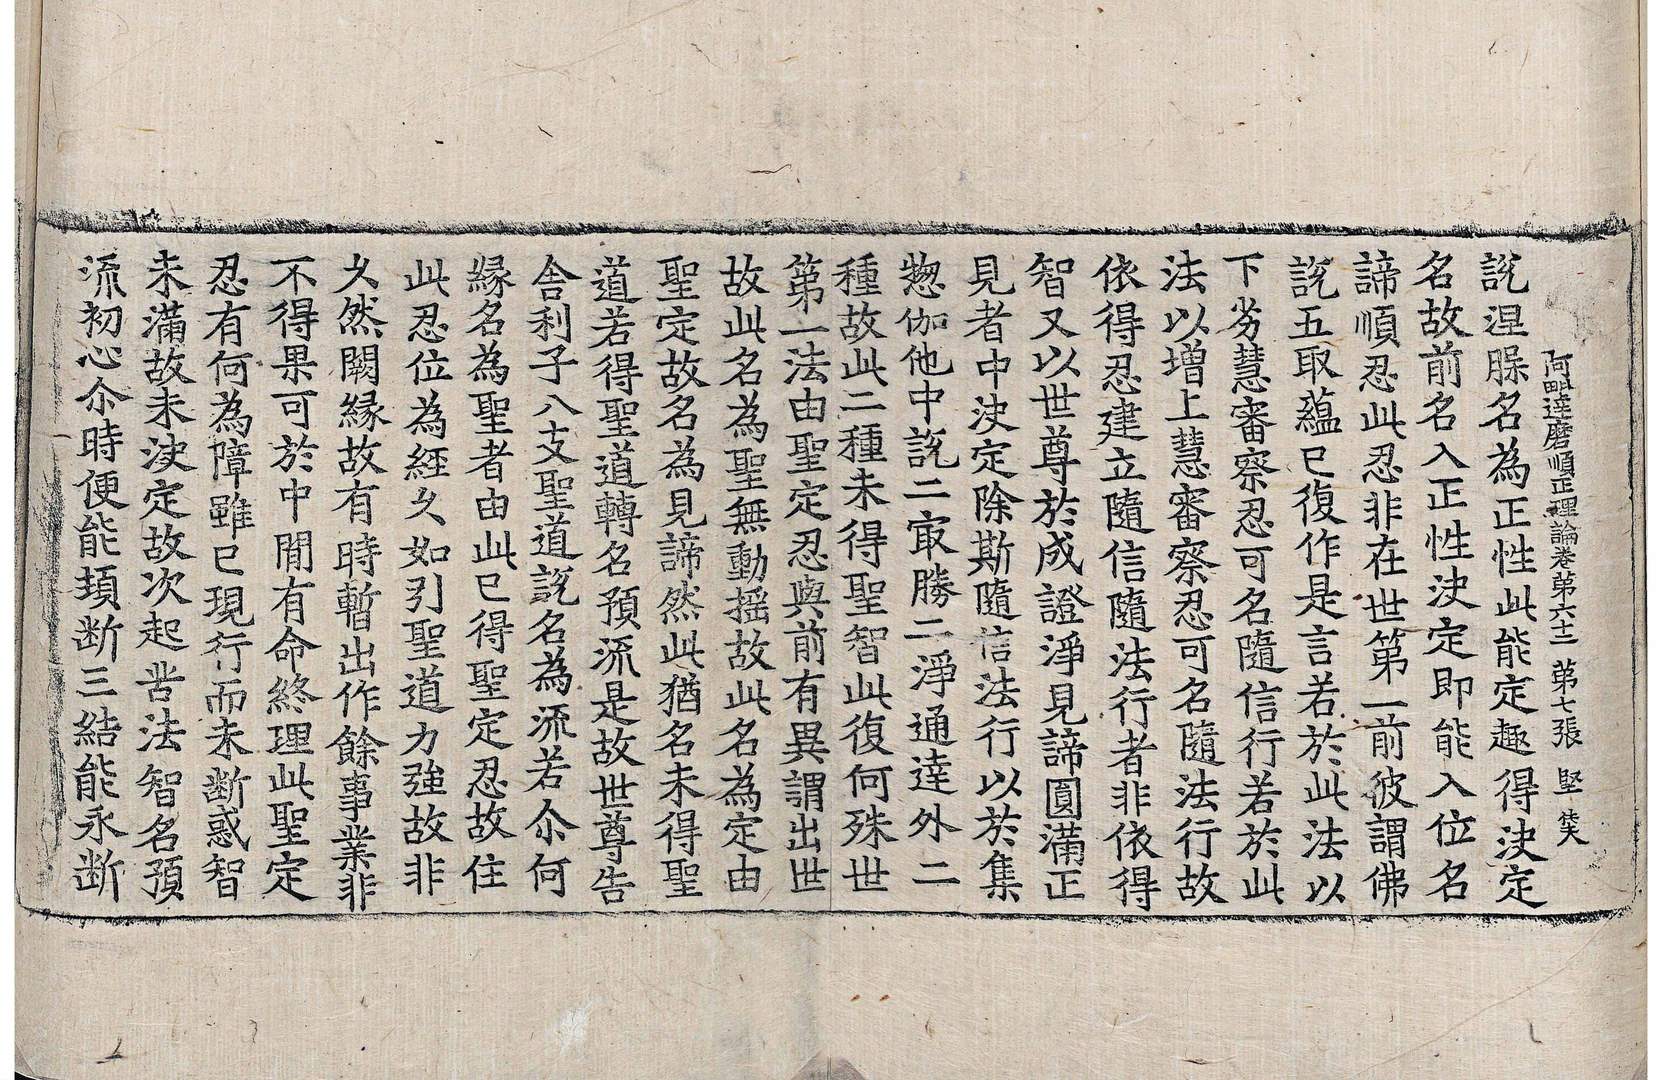 阿毗達磨順正理論卷第六十二 第七張 堅
說涅膜名為正性此能定趣得決定
名故前名入正性決定即能入位名
諦順忍此忍非在世第一前彼謂佛
說五取蘊已復作是言若於此法以
下劣慧審察忍可名隨信行若於此
法以增上慧審察忍可名隨法行故
依得忍建立隨信隨法行者非依得
智又以世尊於成證淨見諦圓滿正
見者中決定除斯隨信法行以於集
惣伽他中說二㝡勝二淨通達外二
種故此二種未得聖智此復何殊世
第一法由聖定忍與前有異謂出世
故此名為聖無動搖故此名為定由
聖定故名為見諦然此猶名未得聖
道若得聖道轉名預流是故世尊告
舍利子八支聖道說名為流若尒何
緣名為聖者由此已得聖定忍故住
此忍位為經久如引聖道力強故非
久然闕緣故有時暫出作餘事業非
不得果可於中閒有命終理此聖定
忍有何為障雖已現行而未断惑智
未滿故未決定故次起苦法智名預
流初心尒時便能頓断三結能永断